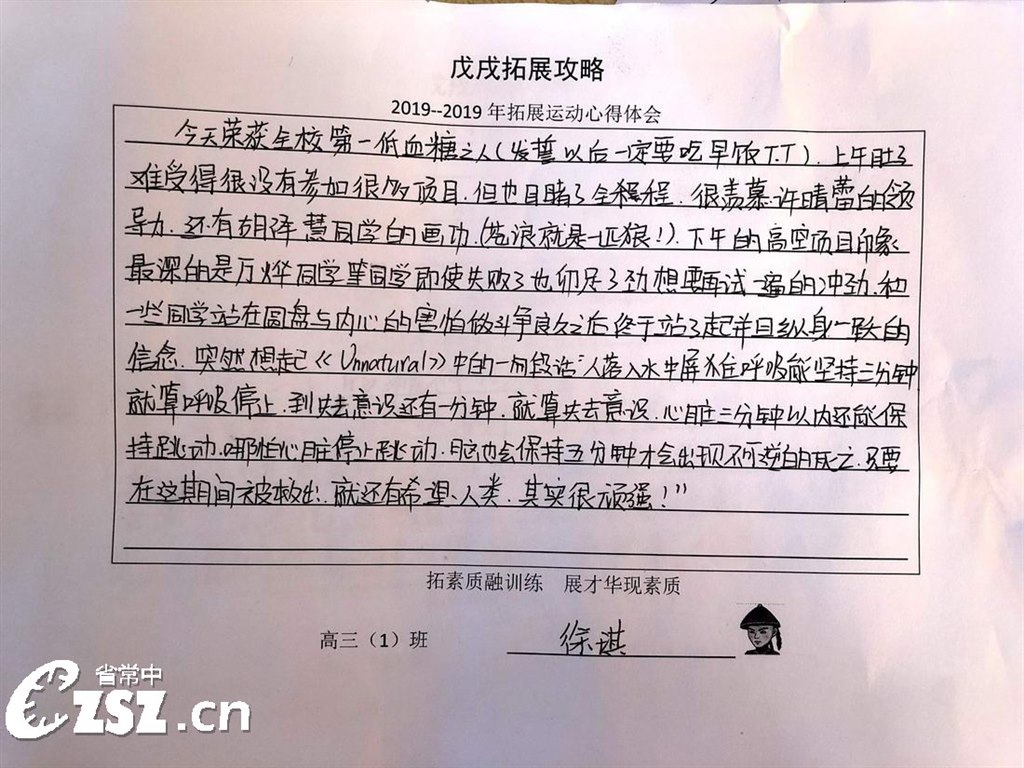 戊戌拓展攻略
2019--2019 年拓展运动心得体会
今天荣获全校第一低血糖之人(发誓以后一定要吃早饭T.T).上午肚子
难受得很没有参加很多项目.但也目睹了全程.很羡慕许晴蕾的领
导力.还有胡泽慧同学的画功.(苍浪就是一匹狼!).下午的高空项目印象
最深的是万烨同学等同学即使失败了也卯足了劲想要再试一遍的冲劲.和
一些同学站在圆盘与内心的害怕做斗争良久之后终于站了起并且纵身一跃的
信念.突然想起《Unnatural》中的一段话"人落入水中屏住呼吸能坚持三分钟
就算呼吸停止.到失去意识还有一分钟.就算失去意识.心脏三分钟以内还能保
持跳动.哪怕心脏停止跳动.脑也会保持五分钟才会出现不可逆的死亡.只要
在这期间被救出.就还有希望.人类.其实很顽强!"
拓素质融训练 展才华现素质
高三（1）班 徐琪
省常中
CZSZ.cn